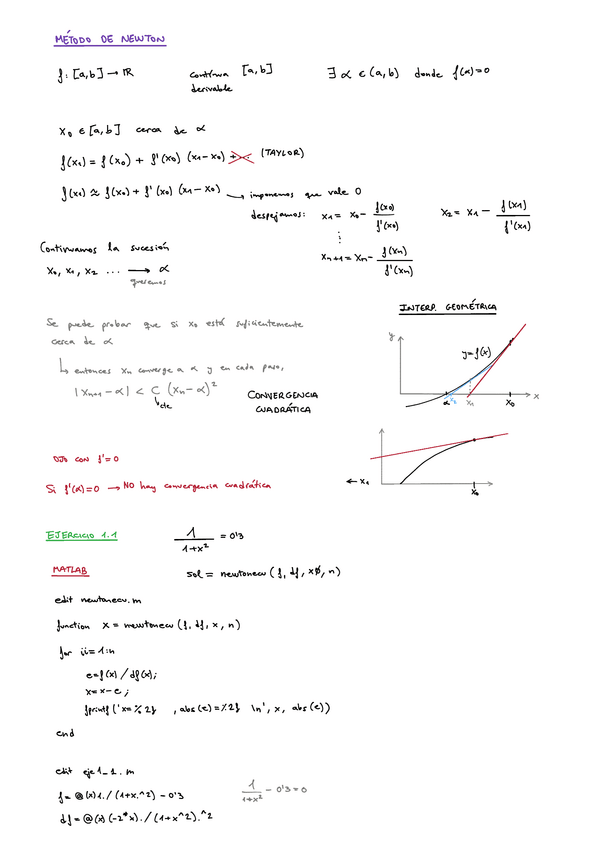 MÉTODO DE NEWTON
f: [a,b] → ℝ   continua [a,b]   ∃ α ∈ (a,b) donde f(α)=0
derivable
x₀ ∈ [a,b] cerca de α
f(x₁) = f(x₀) + f'(x₀) (x₁-x₀) + ... (TAYLOR)
f(x₁) ≈ f(x₀) + f'(x₀) (x₁-x₀) → imponemos que vale 0
despejamos: x₁ = x₀ - f(x₀)/f'(x₀)   x₂ = x₁ - f(x₁)/f'(x₁)
⋮
xₙ₊₁ = xₙ - f(xₙ)/f'(xₙ)
Continuamos la sucesión
x₀, x₁, x₂ ... → α
queremos
INTERP. GEOMÉTRICA
y
y=f(x)
α x₂ x₁ x₀ x
Se puede probar que si x₀ está suficientemente
cerca de α
↳ entonces xₙ converge a α y en cada paso,
|xₙ₊₁ - α| < C (xₙ-α)²
↳ cte
CONVERGENCIA
CUADRÁTICA
← x₁
x₀
OJO con f'=0
Si f'(α)=0 → NO hay convergencia cuadrática
EJERCICIO 1.1   1/(1+x²) = 0'3
MATLAB   sol = newtonecu (f, df, xø, n)
edit newtonecu.m
function x = newtonecu (f, df, x, n)
for ii=1:n
e=f(x) / df(x);
x=x-e;
fprintf ('x=%2f , abs(e)=%2f \n', x, abs(e))
end
edit eje1_1.m
f= @(x)1./(1+x.^2) - 0'3   1/(1+x²) - 0'3=0
df= @(x) (-2*x)./(1+x^2).^2